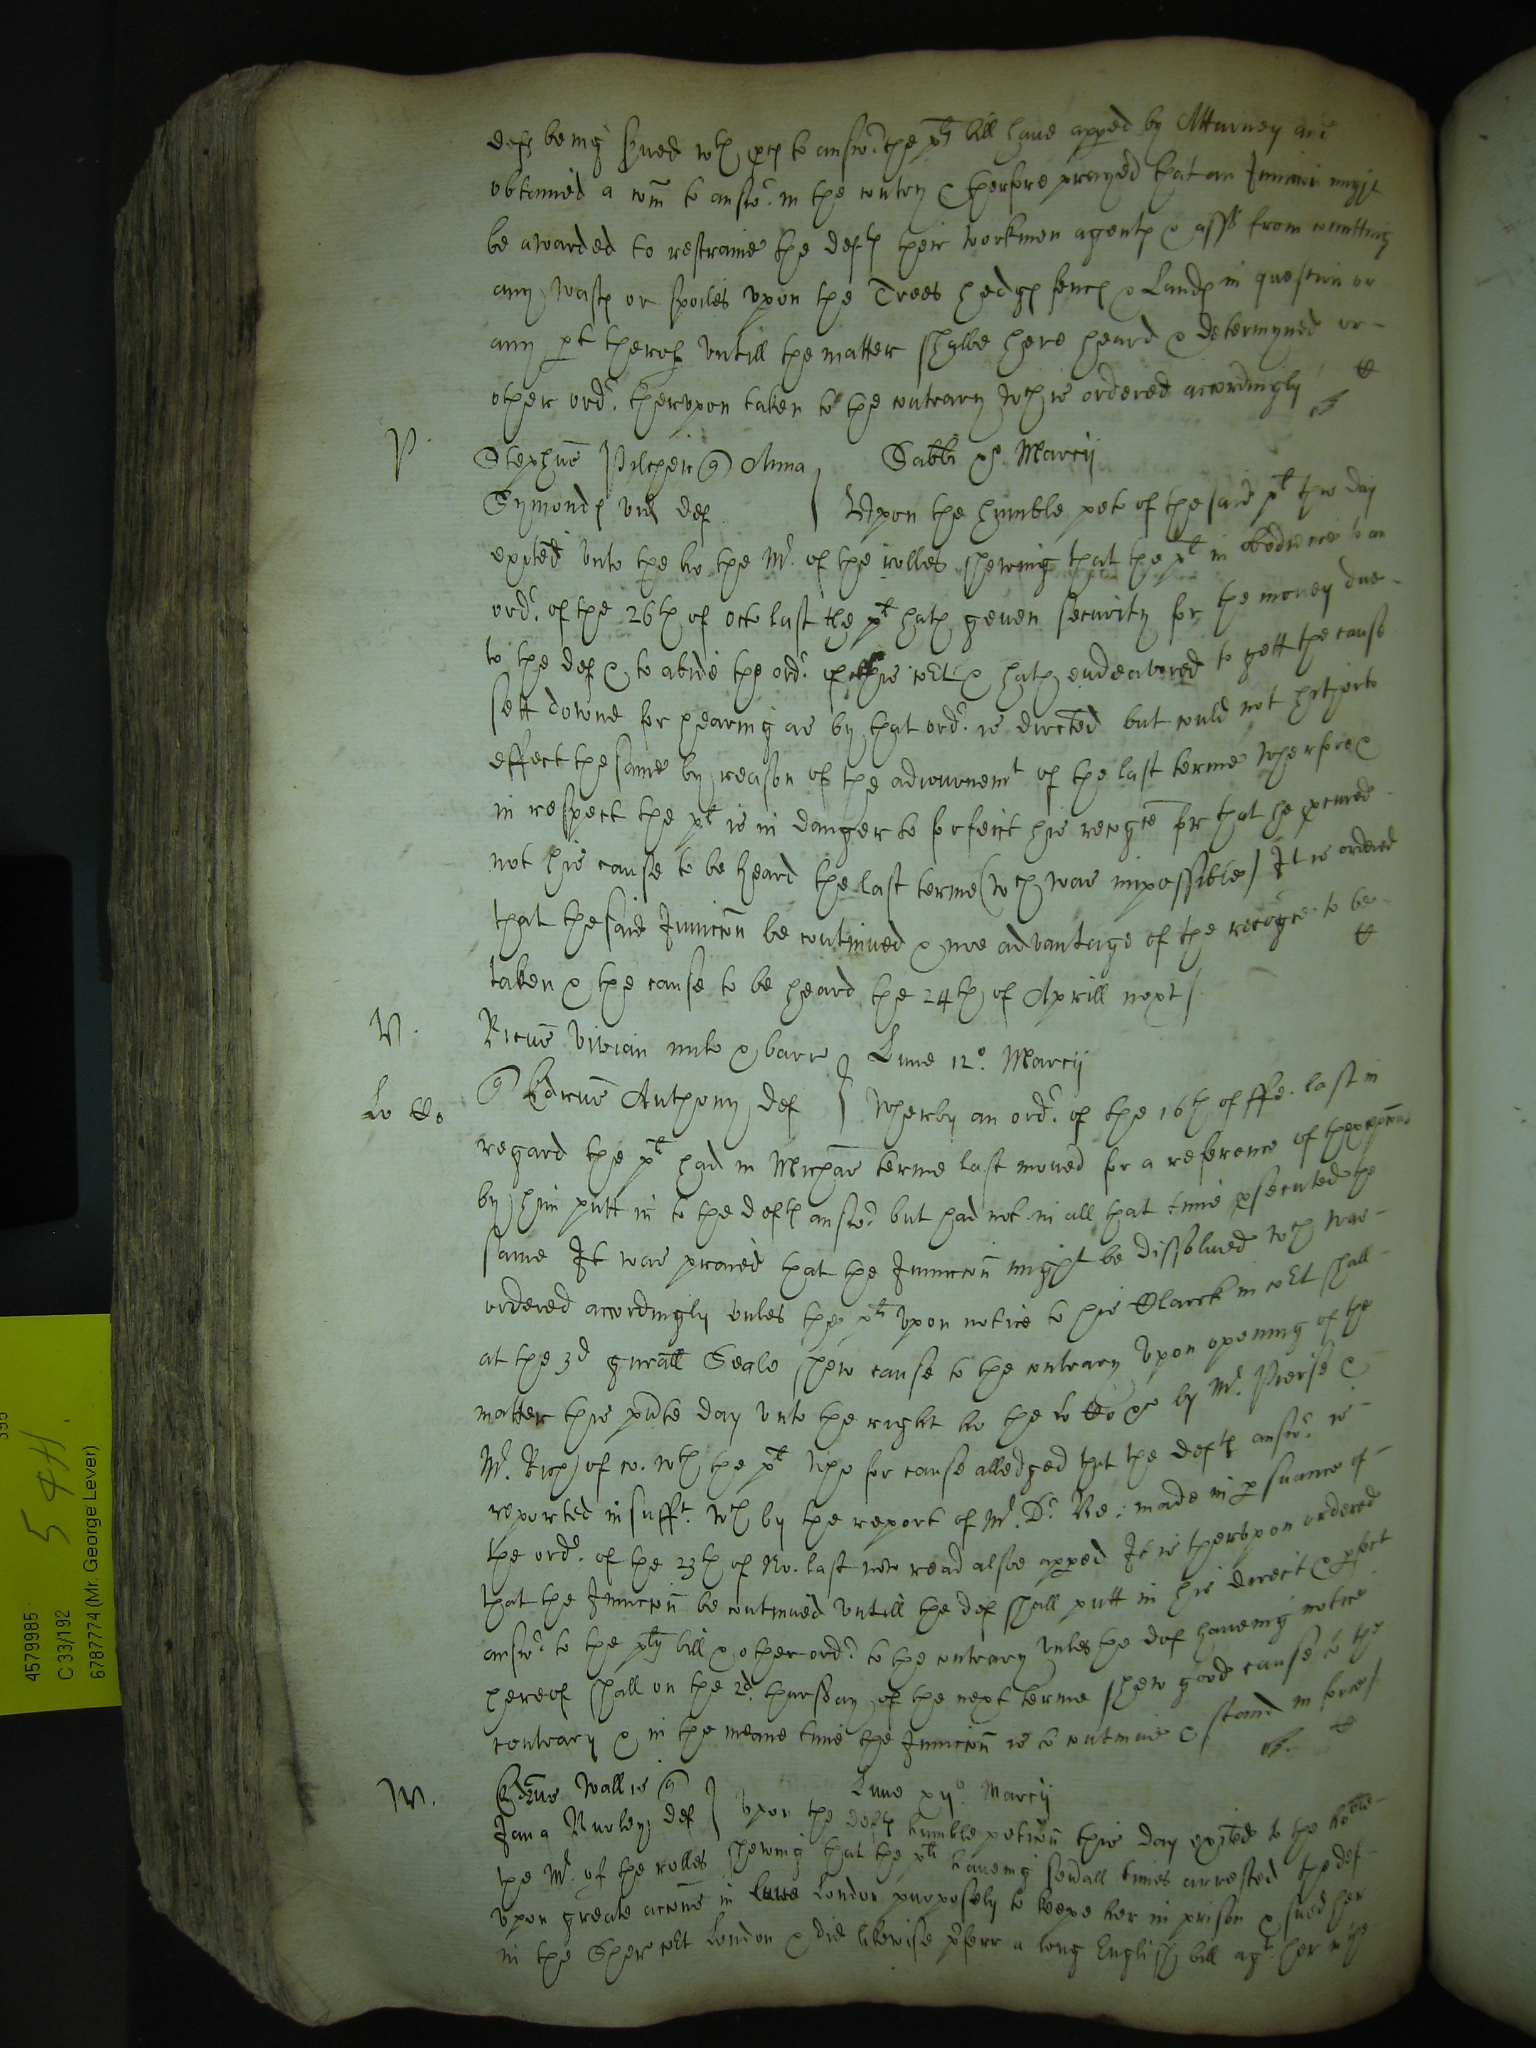 defs being served wth proces to answ:r the plts bill have appeed by Atturney and
obtained a com to answ:r in the contry & therfore prayed that an Iniuncion might
be awarded to restraine the defts their workmen agents & assis from comitting
any wasts or spoiles upon the Trees hedges fences & Lands in question or
any pt therof untill the matter shalbe here heard & determyned or
other ord:r therupon taken to the contrary wch is ordered accordingly
P. Stephus Pilcher qr Anna } Sabbi Marcij
Symonds vid def } Upon the humble peto of the said plt this day
exited unto the ho the Mr. of the rolles shewing that the plt in obedience to an
ord:r of the 26th of Octo last the plt hath geven security for the money due
to the def & to abide the ord:r of this cort & hath endeavored to gett the cause
sett downe for hearing as by that ord:r is directed but could not hitherto
effect the same by reason of the adiournemt of the last terme Wherfore &
in respect the plt is in danger to forfeit his recogce for that he procured
not his cause to be heard the last terme (wch was impossible) It is ordered
that the said Iniuncion be continued & noe advantage of the recogce to be
taken & the cause to be heard the 24th of Aprill next /
V. Ricus Vivian milo & barr } Lune 12o. Marcij
qr Edrus Anthony def } Wherby an ord:r of the 16th of ffe. last in
regard the plt had in Michas terme last moved for a reference of thexcepcons
by him putt in to the defts answ:r but had not in all that time prosecuted the
same It was praied that the Iniuncion might be dissolved wch was
ordered accordingly unles the plt upon notice to his Clarck in cort shall
at the 3d generall Seale shew cause to the contrary Upon opening of the
matter this pnte day unto the right ho the lo by Mr. Pierse &
Mr. Rich of co. wth the plt who for cause alledged that the defts answ:r is
reported insufft. wch by the report of Mr. Dr. made in psuance of
the ord:r of the 23th of No. last now read alsoe appeed It is therupon ordered
that the Iniuncion be continued untill the def shall putt in his direct & pfect
answ:r to the plts bill & other ord:r to the contrary unles the def haveing notice
hereof shall on the 2d. thursday of the next terme shew good cause to the
contrary & in the meane time the Iniuncion is to continue & stand in force /
W. Edrus Wallis qr } Lune xijo. Marcij
Jana Burley def } Upon the defts humble peticon this day exited to the hoble
the Mr. of the rolles shewing that the plt haveing severall times arrested the def
upon greate accons in London purposely to keepe her in prison & sued her
in the Sher cort London & did likewise pferr a long English bill agt. her in the
4579985
C 33/192
6787774 (Mr. George Lever)